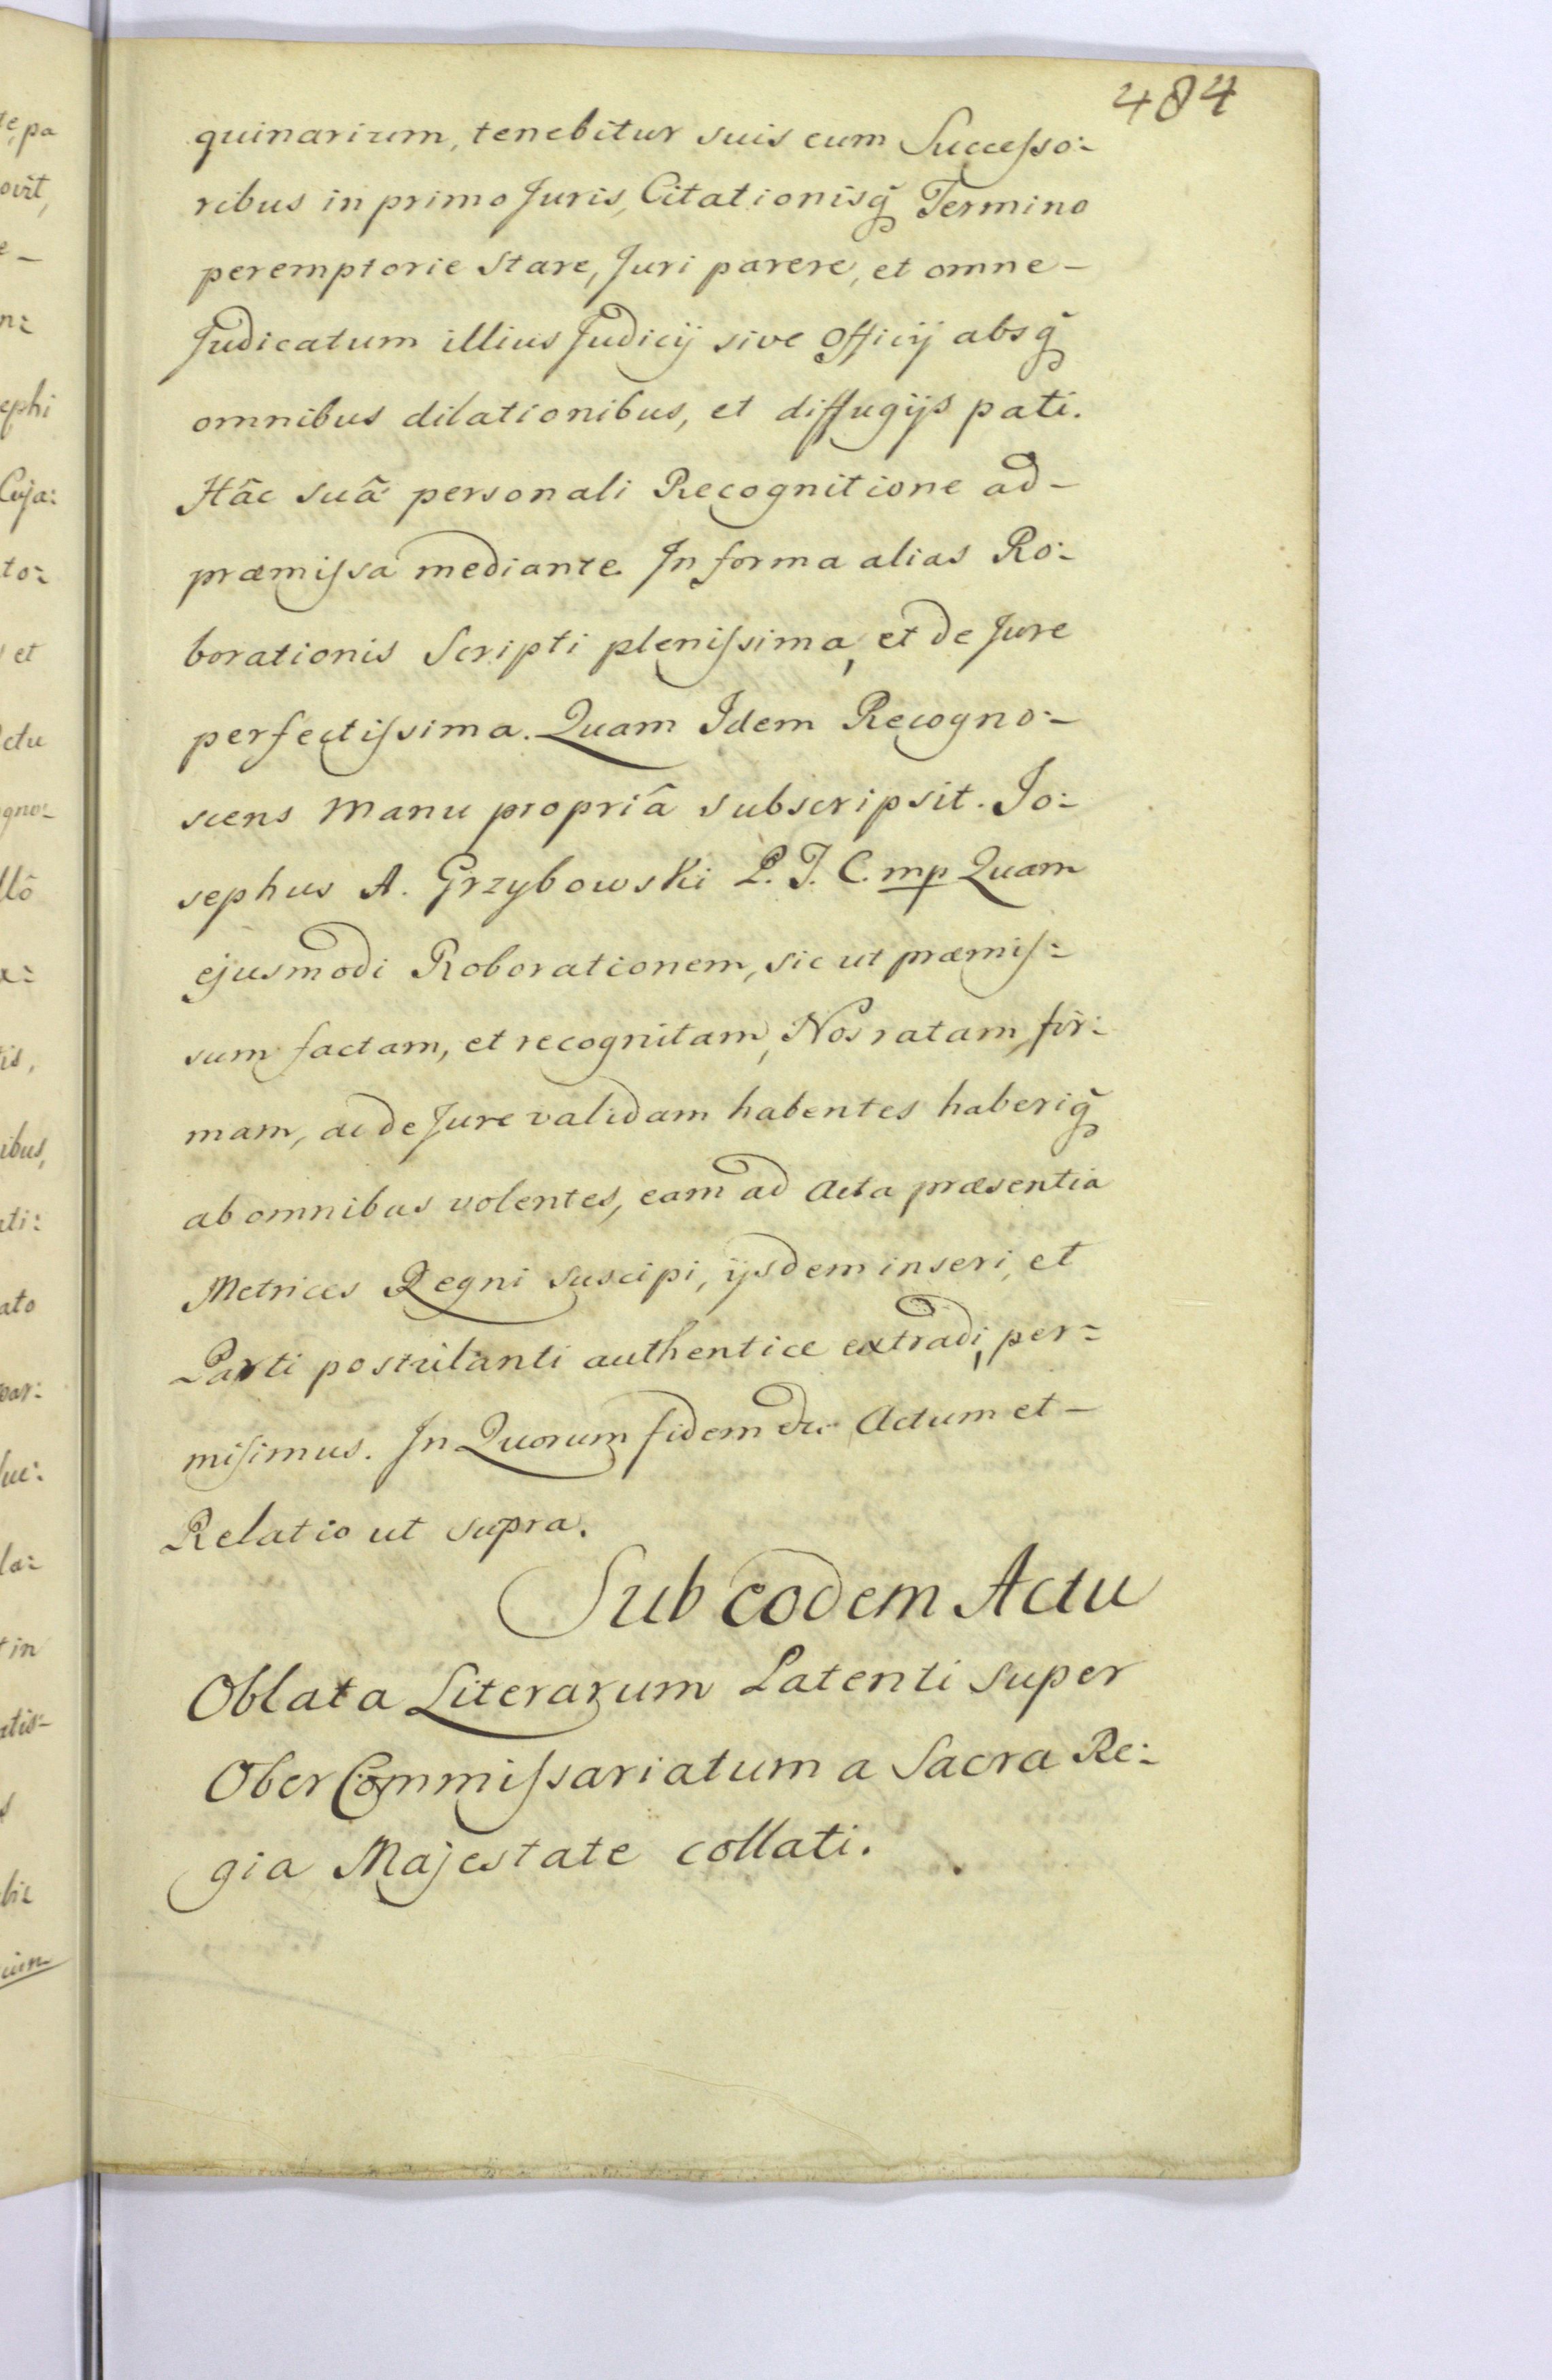 484
quinarium, tenebitur suis cum Successo:
ribus in primo Juris, Citationisq̃ Termino
peremptorie stare, Juri parere, et omne –
Judicatum illius Judicij sive Officij absq̃
omnibus dilationibus, et diffugijs pati.
Hâc suâ personali Recognitione ad –
præmissa mediante. In forma alias Ro:
borationis Scripti plenissima, et de Jure
perfectissima. Quam Idem Recogno:
scens manu propriâ subscripsit. Jo:
sephus A. Grzybowski P. T. C. mp Quam
ejusmodi Roborationem, sic ut præmis:
sum factam, et recognitam, Nos ratam, fir:
mam, ac de Jure validam habentes haberiq̃
ab omnibus volentes, eam ad Acta præsentia
Metrices Regni suscipi, ijsdem inseri, et
Parti postulanti authentice extradi, per:
misimus. In Quorum fidem Actum et –
Relatio ut supra.
Sub eodem Actu
Oblata Literarum Patenti super
Ober Commissariatum a Sacra Re:
gia Majestate collati.